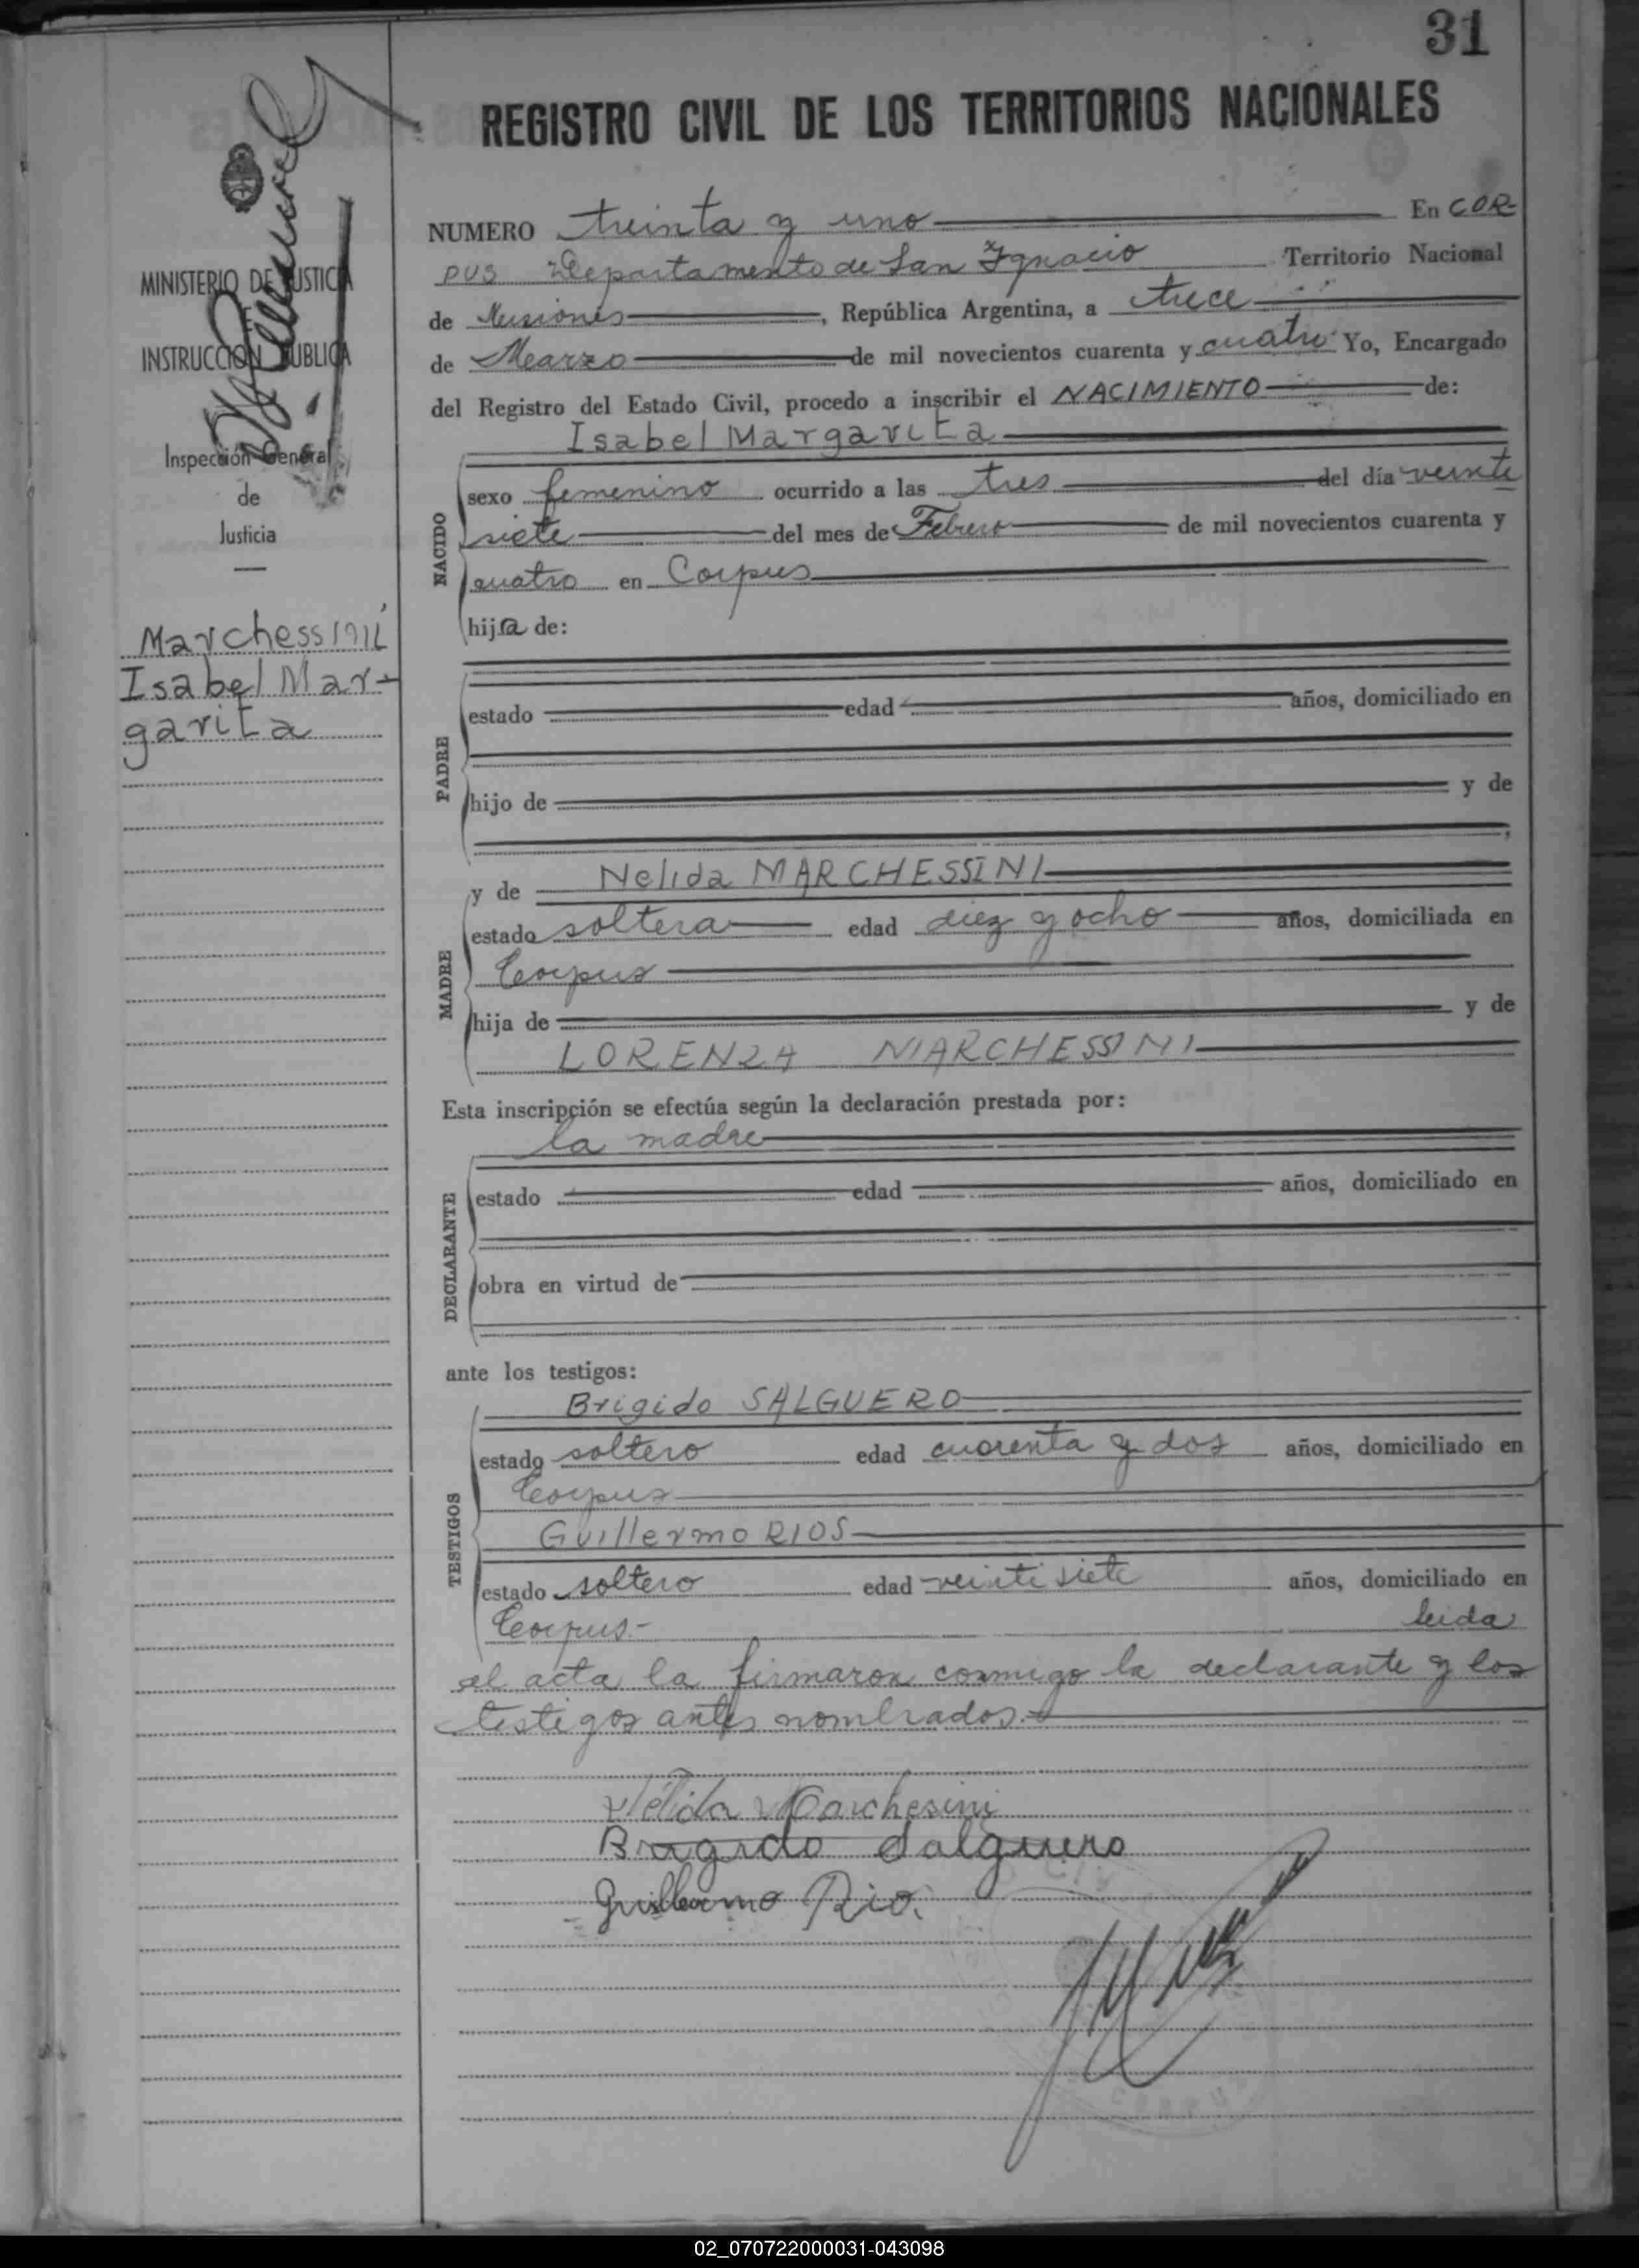 31
REGISTRO CIVIL DE LOS TERRITORIOS NACIONALES
MINISTERIO DE JUSTICIA
E
INSTRUCCION PUBLICA
Inspección General
de
Justicia
Marchessini
Isabel Mar-
garita
NUMERO treinta y uno En COR-
PUS Departamento de San Ygnacio Territorio Nacional
de Misiones, República Argentina, a trece
de Marzo de mil novecientos cuarenta y cuatro Yo, Encargado
del Registro del Estado Civil, procedo a inscribir el NACIMIENTO de:
Isabel Margarita
NACIDO
sexo femenino ocurrido a las tres del día veinte
siete del mes de Febrero de mil novecientos cuarenta y
cuatro en Corpus
hija de:
PADRE
estado edad años, domiciliado en
hijo de y de
MADRE
y de Nelida MARCHESSINI
estado soltera edad diez y ocho años, domiciliada en
Corpus
hija de y de
LORENZA MARCHESSINI
Esta inscripción se efectúa según la declaración prestada por:
la madre
DECLARANTE
estado edad años, domiciliado en
obra en virtud de
ante los testigos:
TESTIGOS
Brigido SALGUERO
estado soltero edad cuarenta y dos años, domiciliado en
Corpus
Guillermo RIOS
estado soltero edad veinti siete años, domiciliado en
Corpus.- leida
el acta la firmaron conmigo la declarante y los
testigos antes nombrados.-
Nélida Marchesini
Brigido Salguero
Guillermo Rio.
02_070722000031-043098